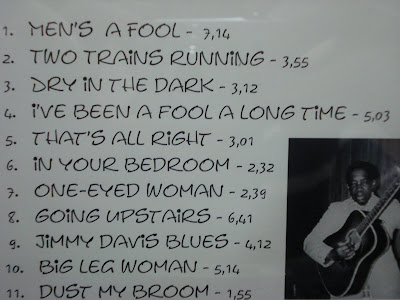 1. MEN'S A FOOL - 7,14
2. TWO TRAINS RUNNING - 3,55
3. DRY iN THE DARK - 3,12
4. i'VE BEEN A FOOL A LONG TiME - 5,03
5. THAT'S ALL RiGHT - 3,01
6. iN YOUR BEDROOM - 2,32
7. ONE-EYED WOMAN - 2,39
8. GOiNG UPSTAiRS - 6,41
9. JiMMY DAViS BLUES - 4,12
10. BiG LEG WOMAN - 5,14
11. DUST MY BROOM - 1,55